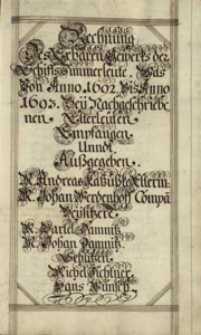 Rechnung
Des Erbaren Gewercks der
Schiffs Zimmerleute. Was
Von Anno. 1602. Bis Anno
1603. Beÿ Nachgeschriebe
nen Elterleuten
Empfangen
Unndt
Außgegeben.
M. Andreas Elterm:
M. Johan Werdenhoff Compā
Beÿsitzere
M. Bartel Damnitz
M. Johan Damnitz.
Schützen
Michel
Hans